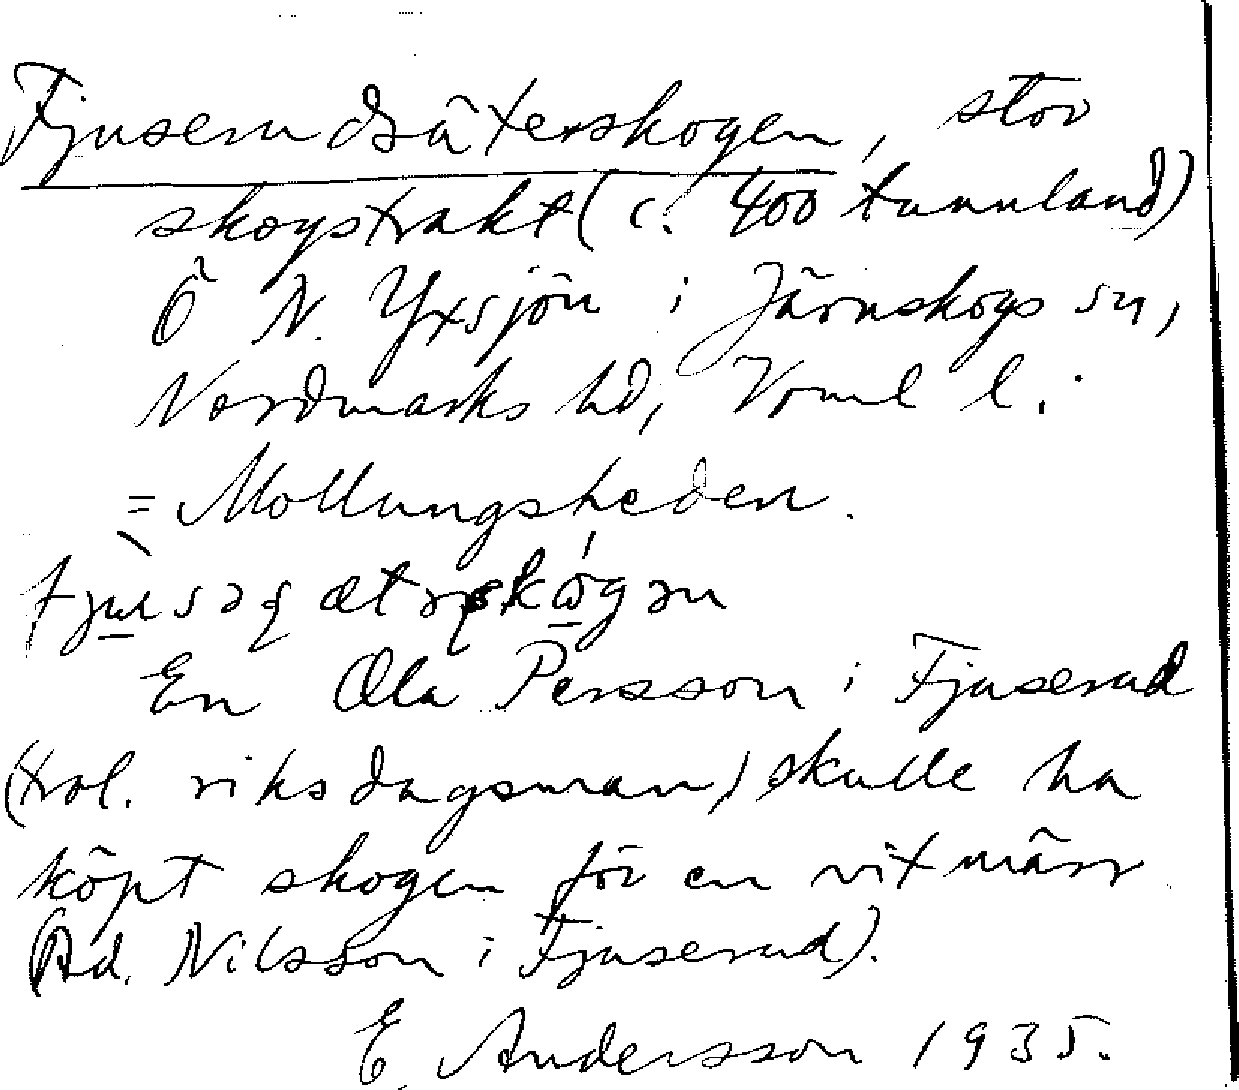 Fjuserudsäterskogen, stor
skogstrakt (c. 400 tunnland)
Ö N. Yxsjön i Järnskogs sn,
Nordmarks hd, Vrml l.
= Mollungsheden.
En Ola Persson i Fjuserud
(trol. riksdagsman) skulle ha
köpt skogen för en vit märr
(Ad. Nilsson i Fjuserud).
E. Andersson 1935.